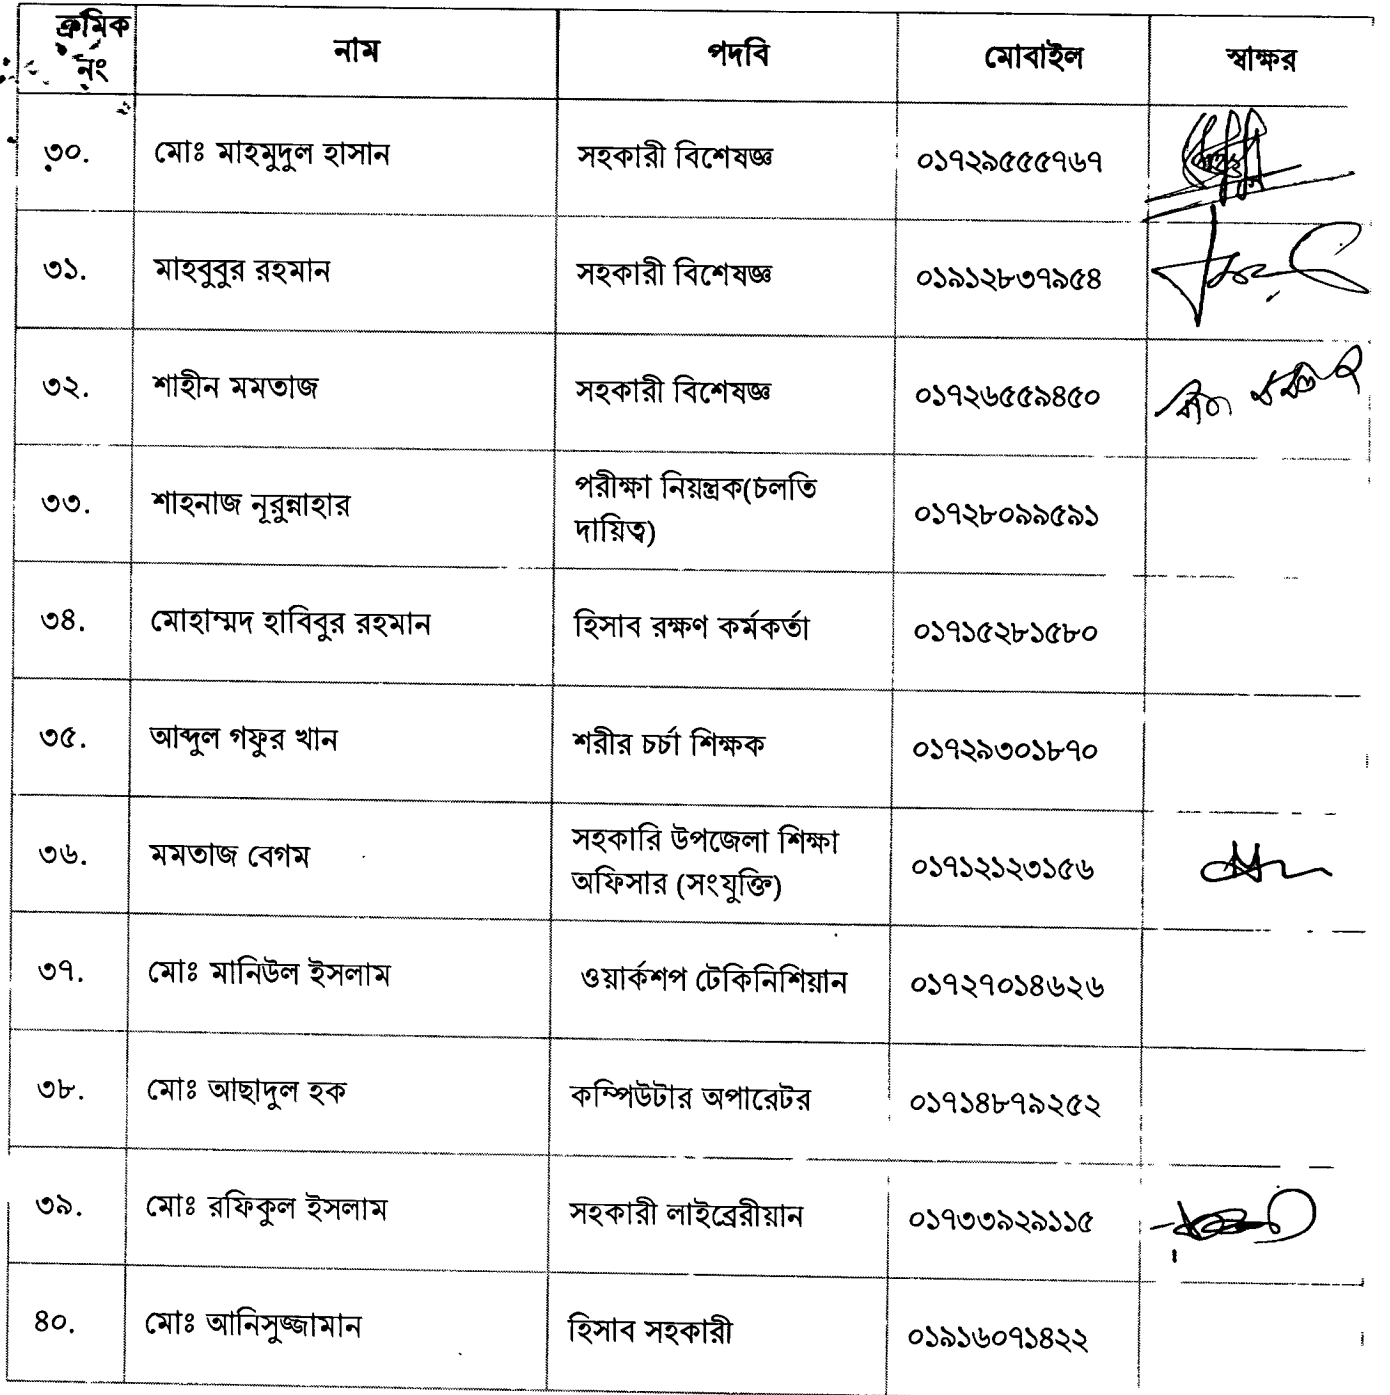 ক্রমিক নং নাম পদবি মোবাইল স্বাক্ষর
৩০. মোঃ মাহমুদুল হাসান সহকারী বিশেষজ্ঞ ০১৭২৯৫৫৫৭৬৭
৩১. মাহবুবুর রহমান সহকারী বিশেষজ্ঞ ০১৯১২৮৩৭৯৫৪
৩২. শাহীন মমতাজ সহকারী বিশেষজ্ঞ ০১৭২৬৫৫৯৪৫০
৩৩. শাহনাজ নূরুন্নাহার পরীক্ষা নিয়ন্ত্রক(চলতি
দায়িত্ব) ০১৭২৮০৯৯৫৯১
৩৪. মোহাম্মদ হাবিবুর রহমান হিসাব রক্ষণ কর্মকর্তা ০১৭১৫২৮১৫৮০
৩৫. আব্দুল গফুর খান শরীর চর্চা শিক্ষক ০১৭২৯৩০১৮৭০
৩৬. মমতাজ বেগম সহকারি উপজেলা শিক্ষা
অফিসার (সংযুক্তি) ০১৭১২১২৩১৫৬
৩৭. মোঃ মানিউল ইসলাম ওয়ার্কশপ টেকিনিশিয়ান ০১৭২৭০১৪৬২৬
৩৮. মোঃ আছাদুল হক কম্পিউটার অপারেটর ০১৭১৪৮৭৯২৫২
৩৯. মোঃ রফিকুল ইসলাম সহকারী লাইব্রেরীয়ান ০১৭৩৩৯২৯১১৫
৪০. মোঃ আনিসুজ্জামান হিসাব সহকারী ০১৯১৬০৭১৪২২